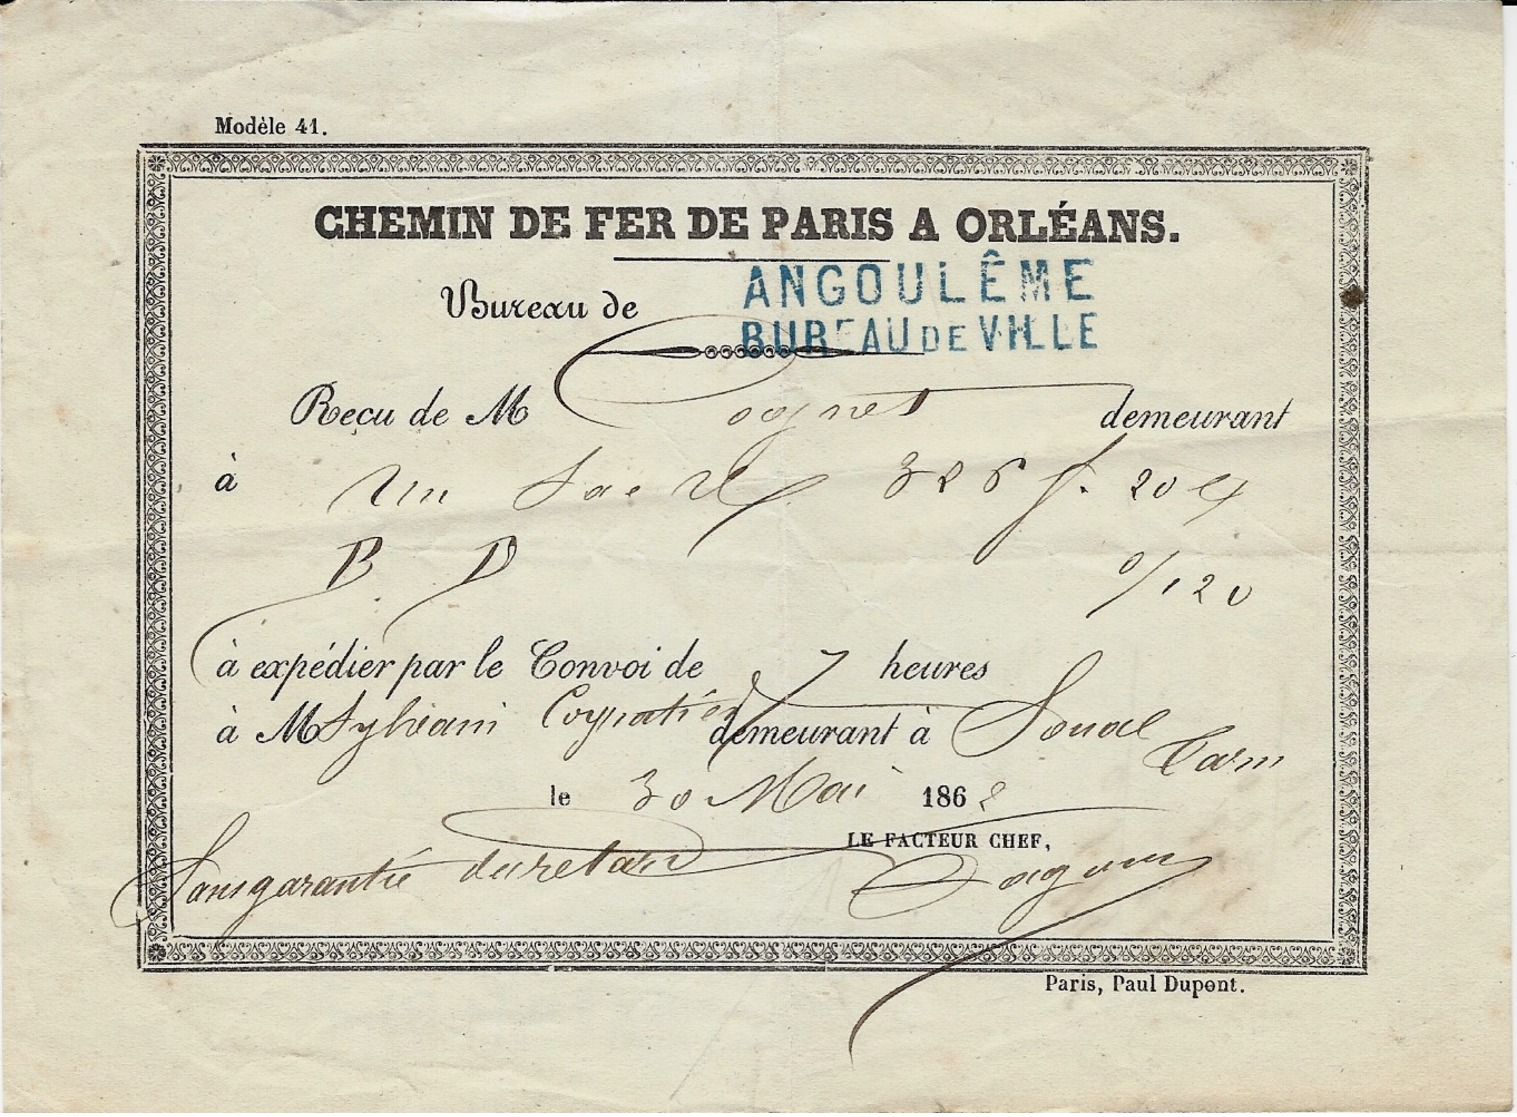 Modèle 41.
CHEMIN DE FER DE PARIS A ORLÉANS.
Bureau de ANGOULÊME
BUREAU DE VILLE
Reçu de M Cognet demeurant
à Un Sac 326 f. 20
B D 0/120
à expédier par le Convoi de 7 heures
à M demeurant à Soual
Tarn
le 30 Mai 1862
LE FACTEUR CHEF,
Sans garantie du retard
Paris, Paul Dupont.